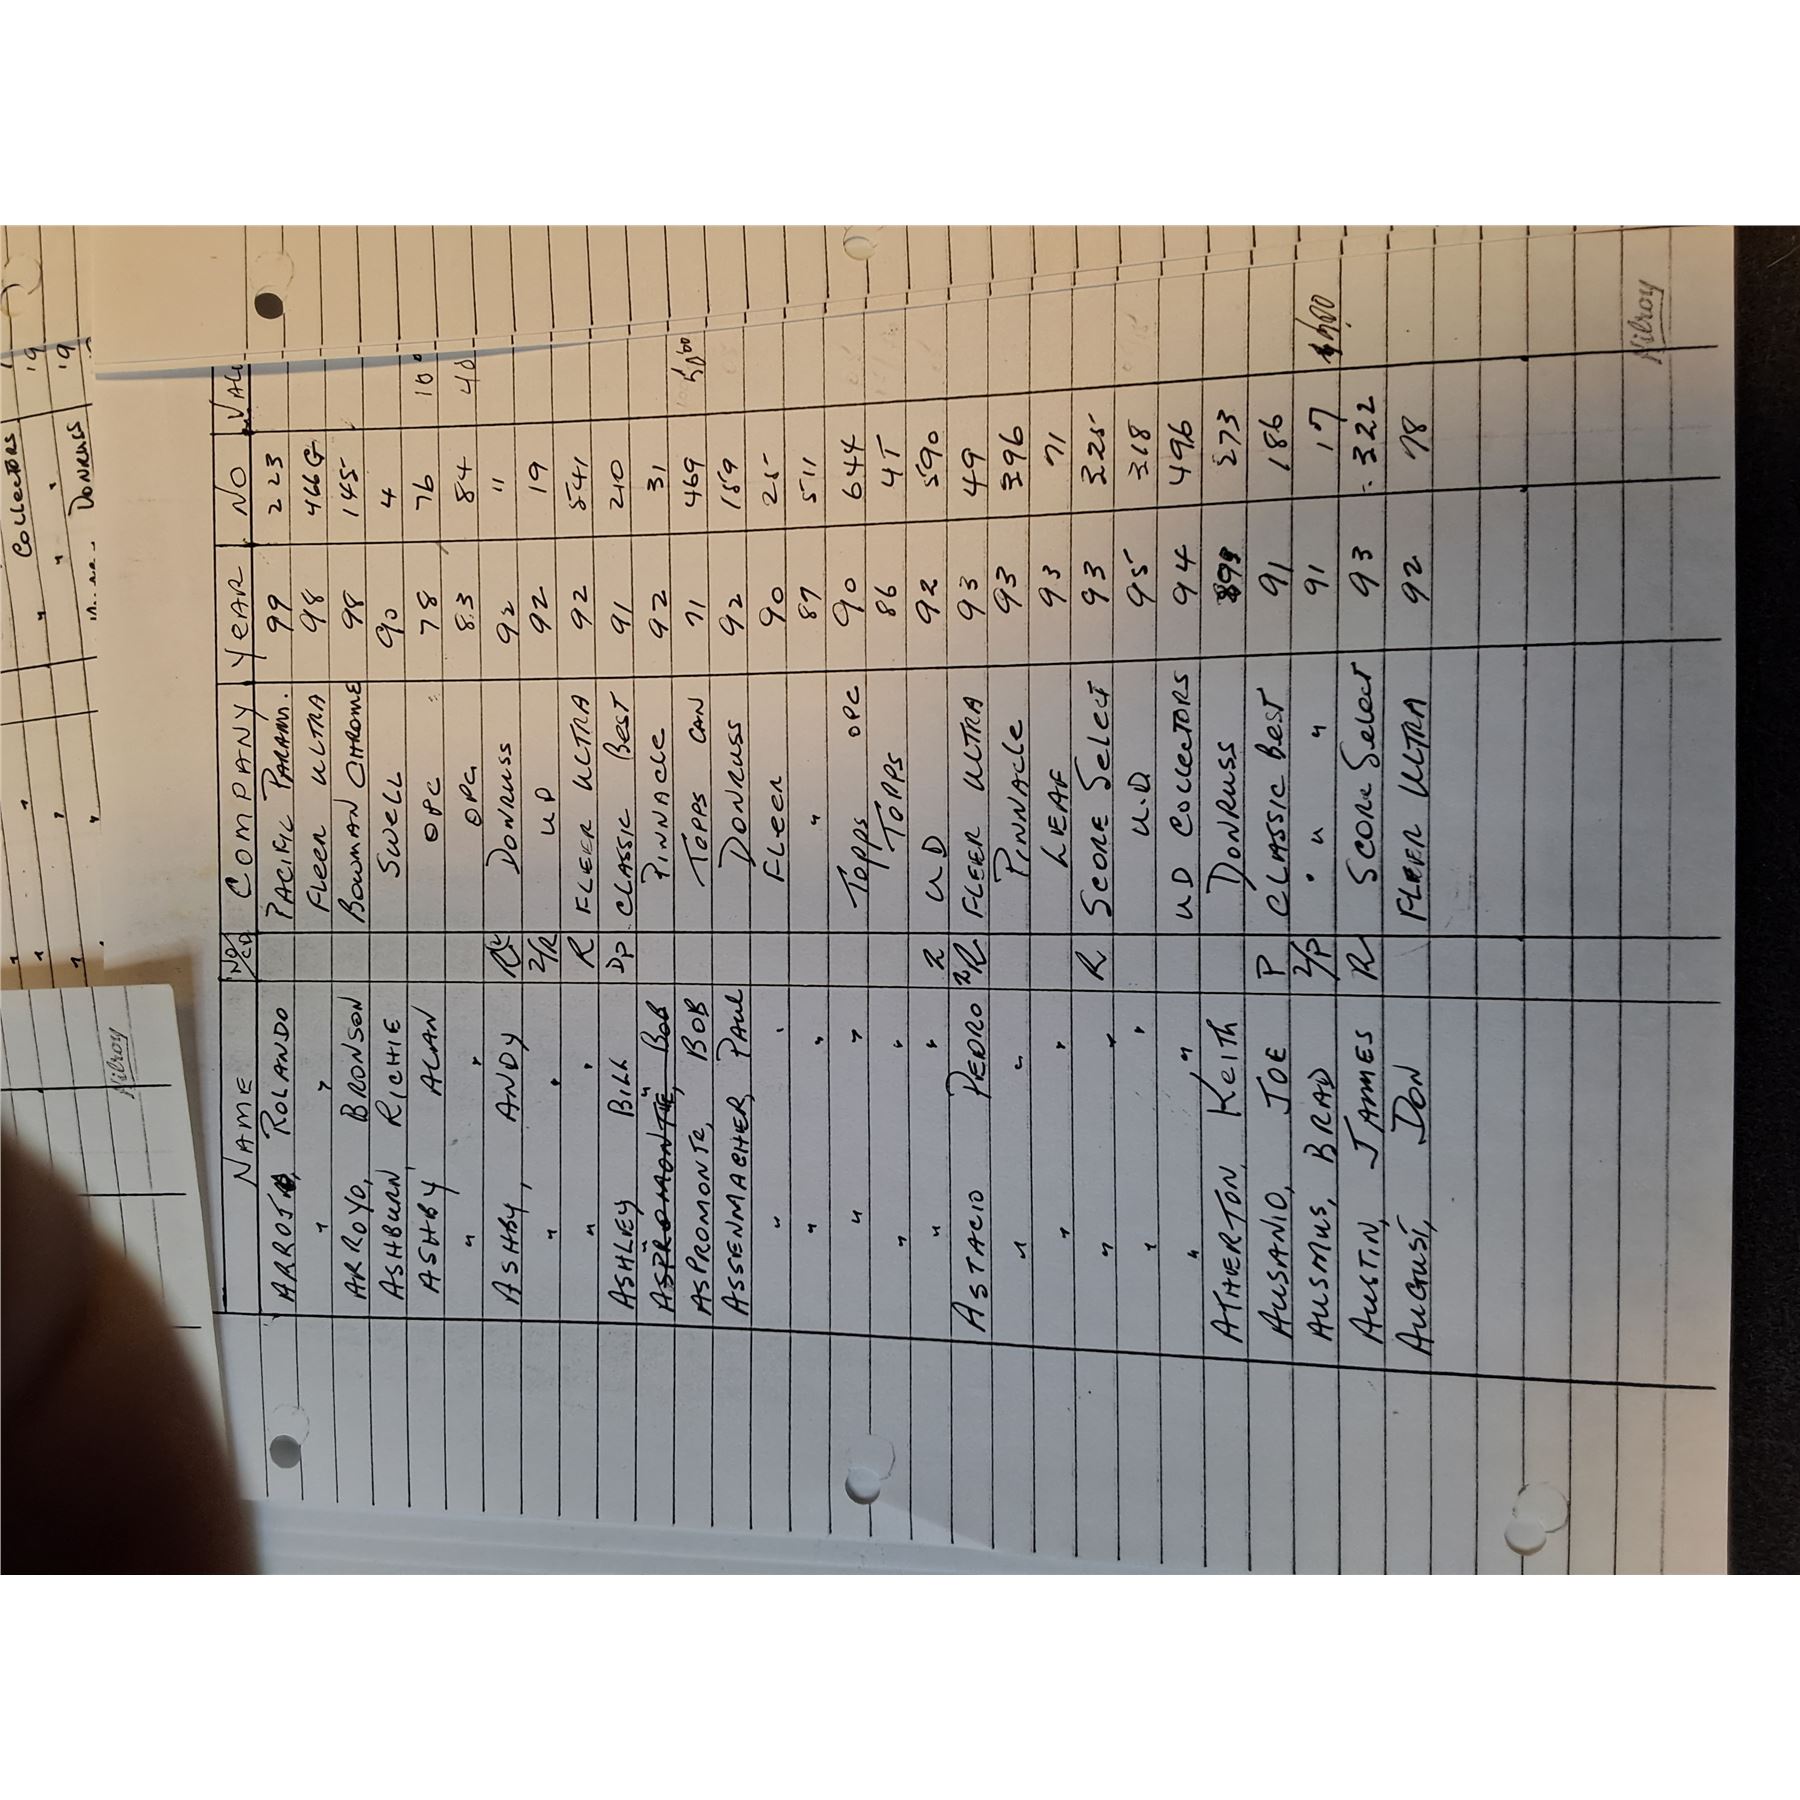 Collectors 19
" " " 19
" " " DONRUSS 19
Hilroy
NAME NO/CD COMPANY YEAR NO VALU
ARROJO, ROLANDO PACIFIC PARAM. 99 223
" " Fleer ULTRA 98 466G
ARROYO, BRONSON BOWMAN CHROME 98 145
ASHBURN, RICHIE SWELL 90 4
ASHBY, ALAN OPC 78 76 100
" " OPC 83 84 40
ASHBY, ANDY R DONRUSS 92 11
" " 2/R UD 92 19
" " R FLEER ULTRA 92 541
ASHLEY BILL DP CLASSIC BEST 91 210
" " PINNACLE 92 31
ASPROMONTE, BOB TOPPS CAN 71 469 50.00
ASSENMACHER, PAUL DONRUSS 92 159
" " Fleer 90 25
" " " 87 511
" " Topps OPC 90 644
" " TOPPS 86 4T
" " R UD 92 590
ASTACIO PEDRO 2/R FLEER ULTRA 93 49
" " PINNACLE 93 396
" " LEAF 93 71
" " R SCORE Select 93 325
" " U.D 95 318
" " UD COLLECTORS 94 496
ATHERTON, KEITH DONRUSS 89 273
AUSANIO, JOE P CLASSIC Best 91 186
AUSMUS, BRAD 2/P " " " 91 17
AUSTIN, JAMES R SCORE Select 93 322
AUGUST, DON FLEER ULTRA 92 78
Hilroy